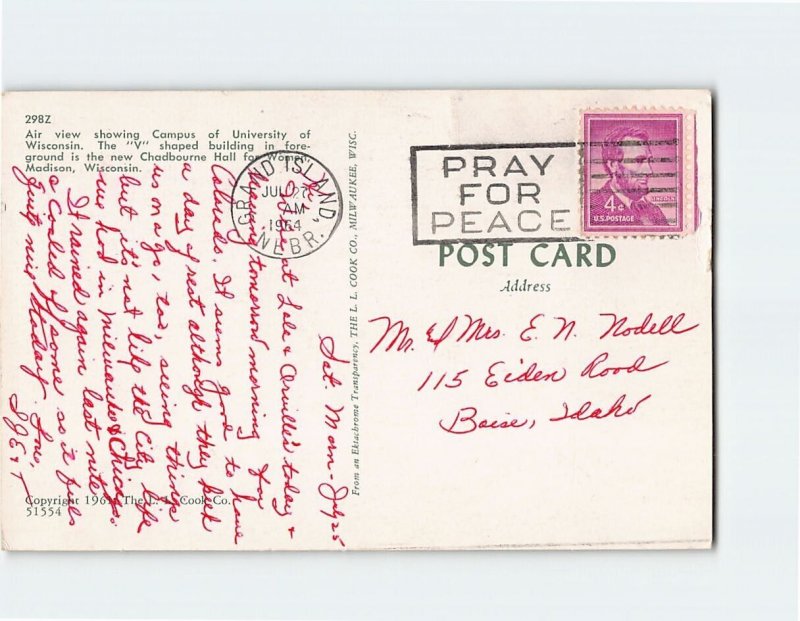 298Z
Air view showing Campus of University of
Wisconsin. The "V" shaped building in fore-
ground is the new Chadbourne Hall for Women,
Madison, Wisconsin.
GRAND ISLAND,
NEBR.
JUL 27
AM
1964
PRAY
FOR
PEACE
4¢
LINCOLN
U.S. POSTAGE
POST CARD
Address
Mr. & Mrs. E. N. Nodell
115 Eiden Road
Boise, Idaho
From an Ektachrome Transparency, THE L. L. COOK CO., MILWAUKEE, WISC.
Sat. Morn - July 25
at Lela & Orville's today &
leaving tomorrow morning for
Colorado. It seems good to have
a day of rest although they kept
us on a go, too, seeing things
but it's not like the City life
we had in Milwaukee & Chicago.
It rained again last nite
& cooled of some so it feels
quite nice today. Love,
Copyright 1961 The L. L. Cook Co.
51554